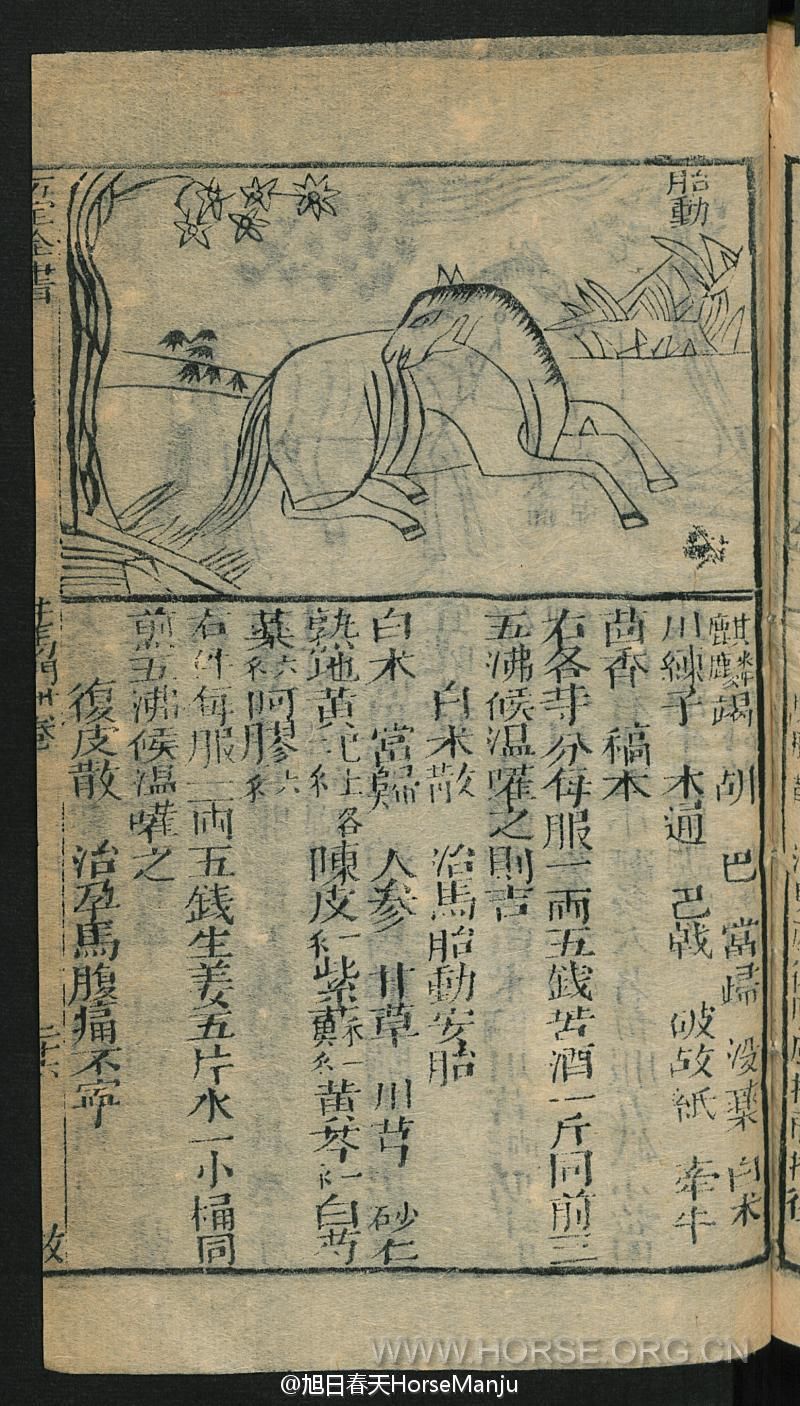 胎動
麒麟竭 胡巴 當歸 没藥 白术
川練子 木通 巴戟 破故紙 牽牛
茴香 稿本
右各等分每服一兩五錢苦酒一斤同前三
五沸候温嚾之則吉
白术散 治馬胎動安胎
白术 當歸 人参 甘草 川芎 砂仁
熟地黄 已上各 陳皮 紫蘇 黄芩 白芍
藥 阿膠
右件每服一兩五錢生姜五片水一小桶同
煎五沸候温嚾之
復皮散 治孕馬腹痛不寧
WWW.HORSE.ORG.CN
@旭日春天HorseManju